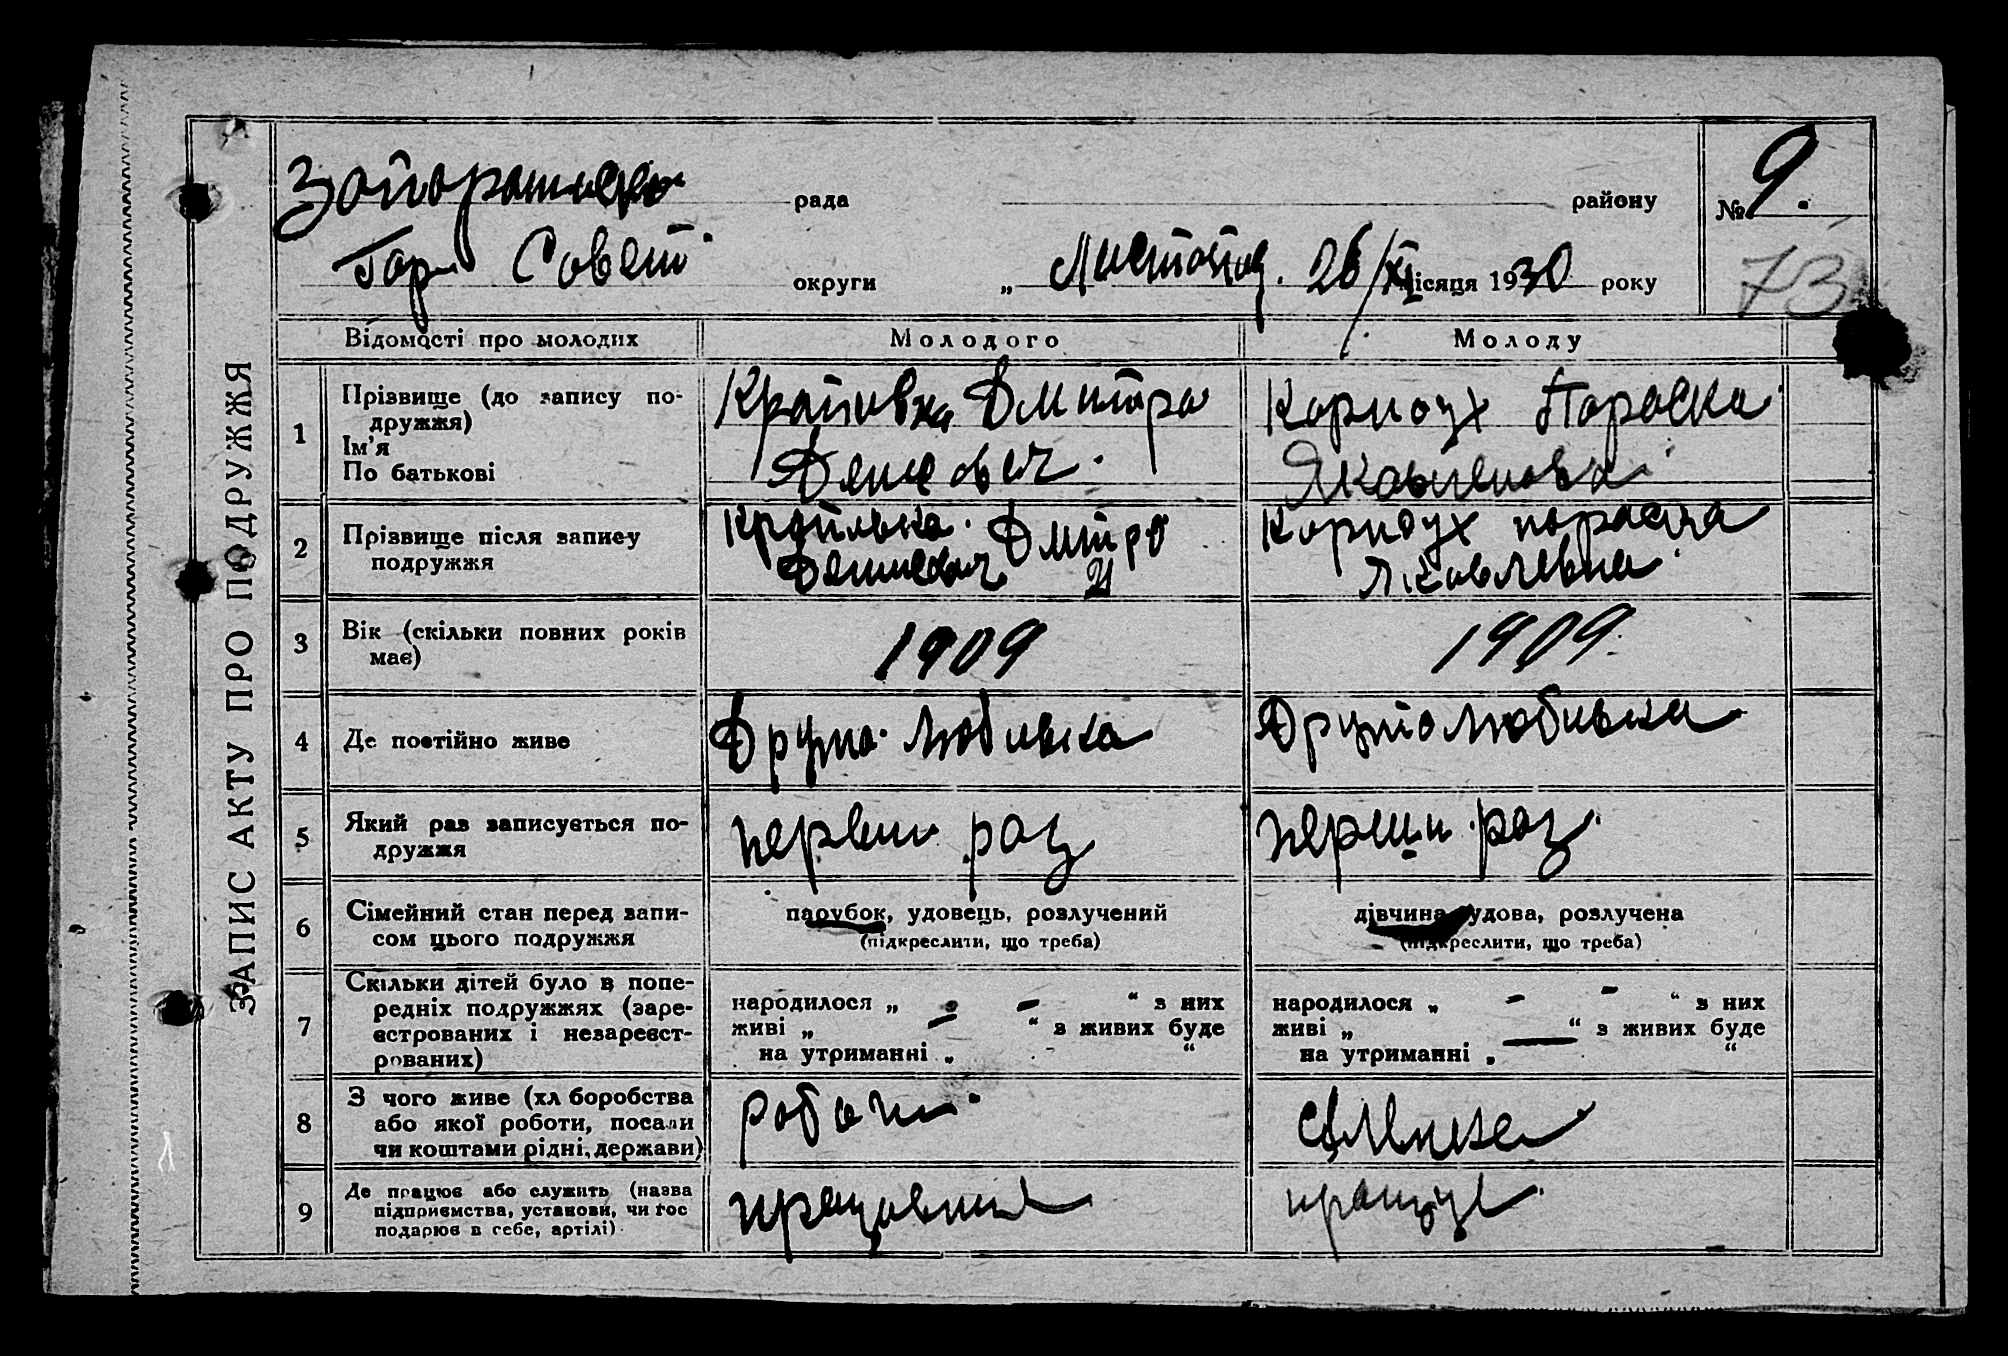 ЗАПИС АКТУ ПРО ПОДРУЖЖЯ
рада району № 9.
Гор Совет округи „ Листопад. 26/XI місяця 1930 року
73
Відомості про молодих Молодого Молоду
1 Прізвище (до запису по-
дружжя)
Ім’я
По батькові
Дмитро
Корноух Параска
2 Прізвище після запису
подружжя
Дмитро
Корноух параска
Яковлевна
3 Вік (скільки повних років
має)
1909 1909.
4 Де постійно живе
Друго Любивка Друго Любивка
5 Який раз записується по-
дружжя
первии раз перши раз.
6 Сімейний стан перед запи-
сом цього подружжя
парубок, удовець, розлучений
(підкреслити, що треба)
дівчина, удова, розлучена
(підкреслити, що треба)
7 Скільки дітей було в попе-
редніх подружжях (заре-
єстрованих і незареєст-
рованих)
народилося „ - “ з них
живі „ - “ з живих буде
на утриманні „ “
народилося „ - - “ з них
живі „ — “ з живих буде
на утриманні „ “
8 З чого живе (хлiборобства
або якої роботи, посади
чи коштами рідні, держави)
робочи
9 Де працює або служить (назва
підприємства, установи, чи гос
подарює в себе, артілі)
працює